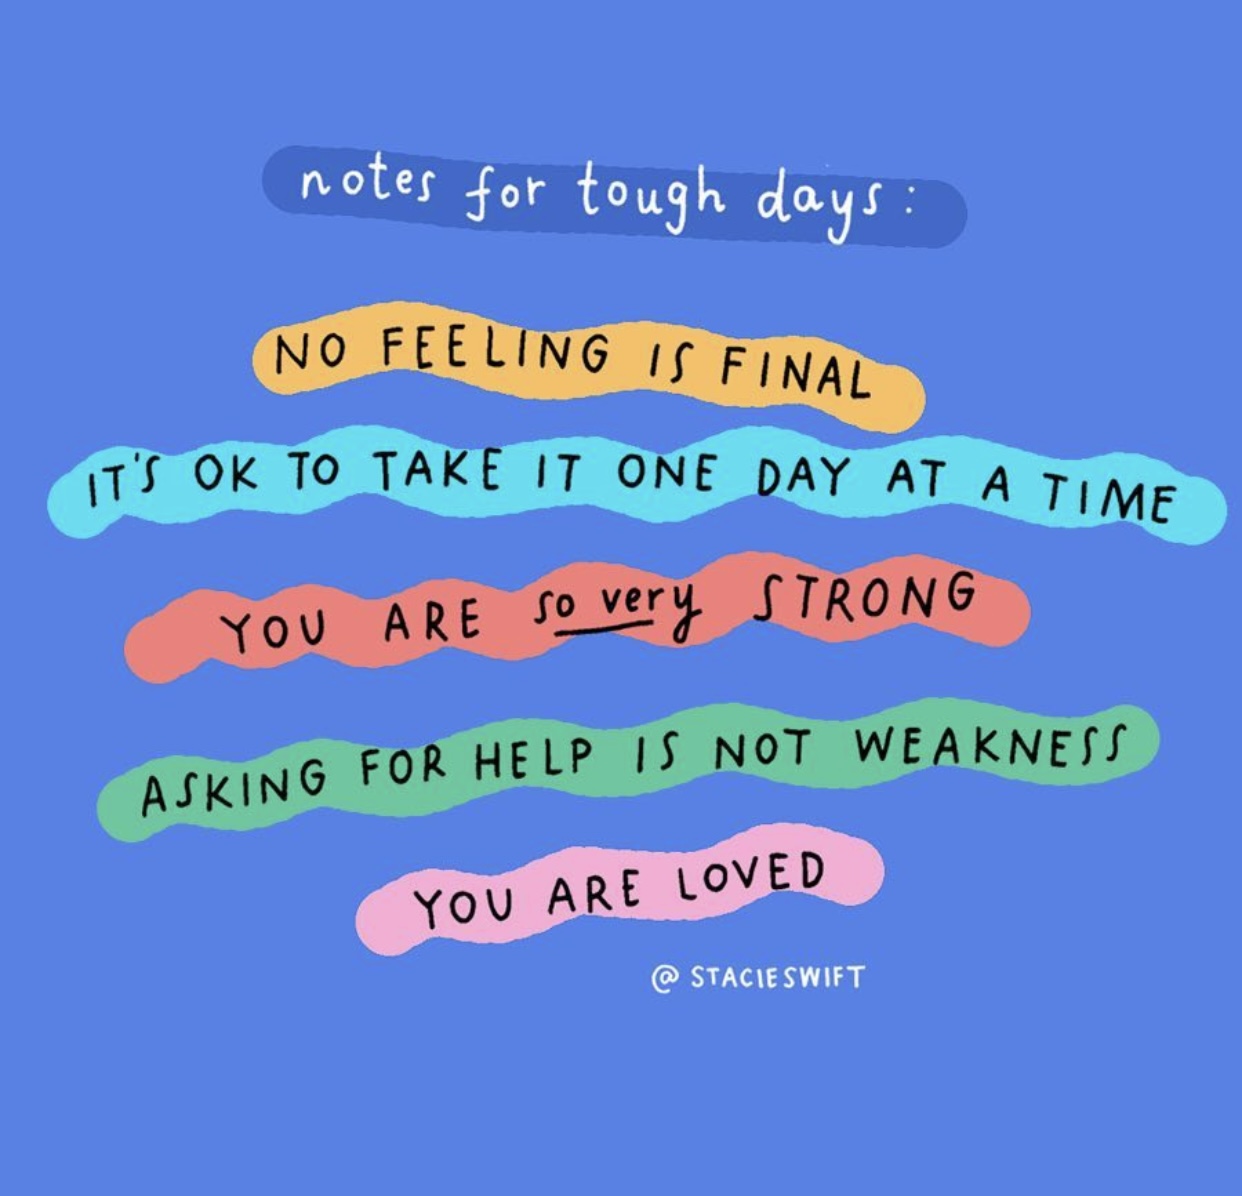 notes for tough days:
NO FEELING IS FINAL
IT'S OK TO TAKE IT ONE DAY AT A TIME
YOU ARE so very STRONG
ASKING FOR HELP IS NOT WEAKNESS
YOU ARE LOVED
@STACIESWIFT